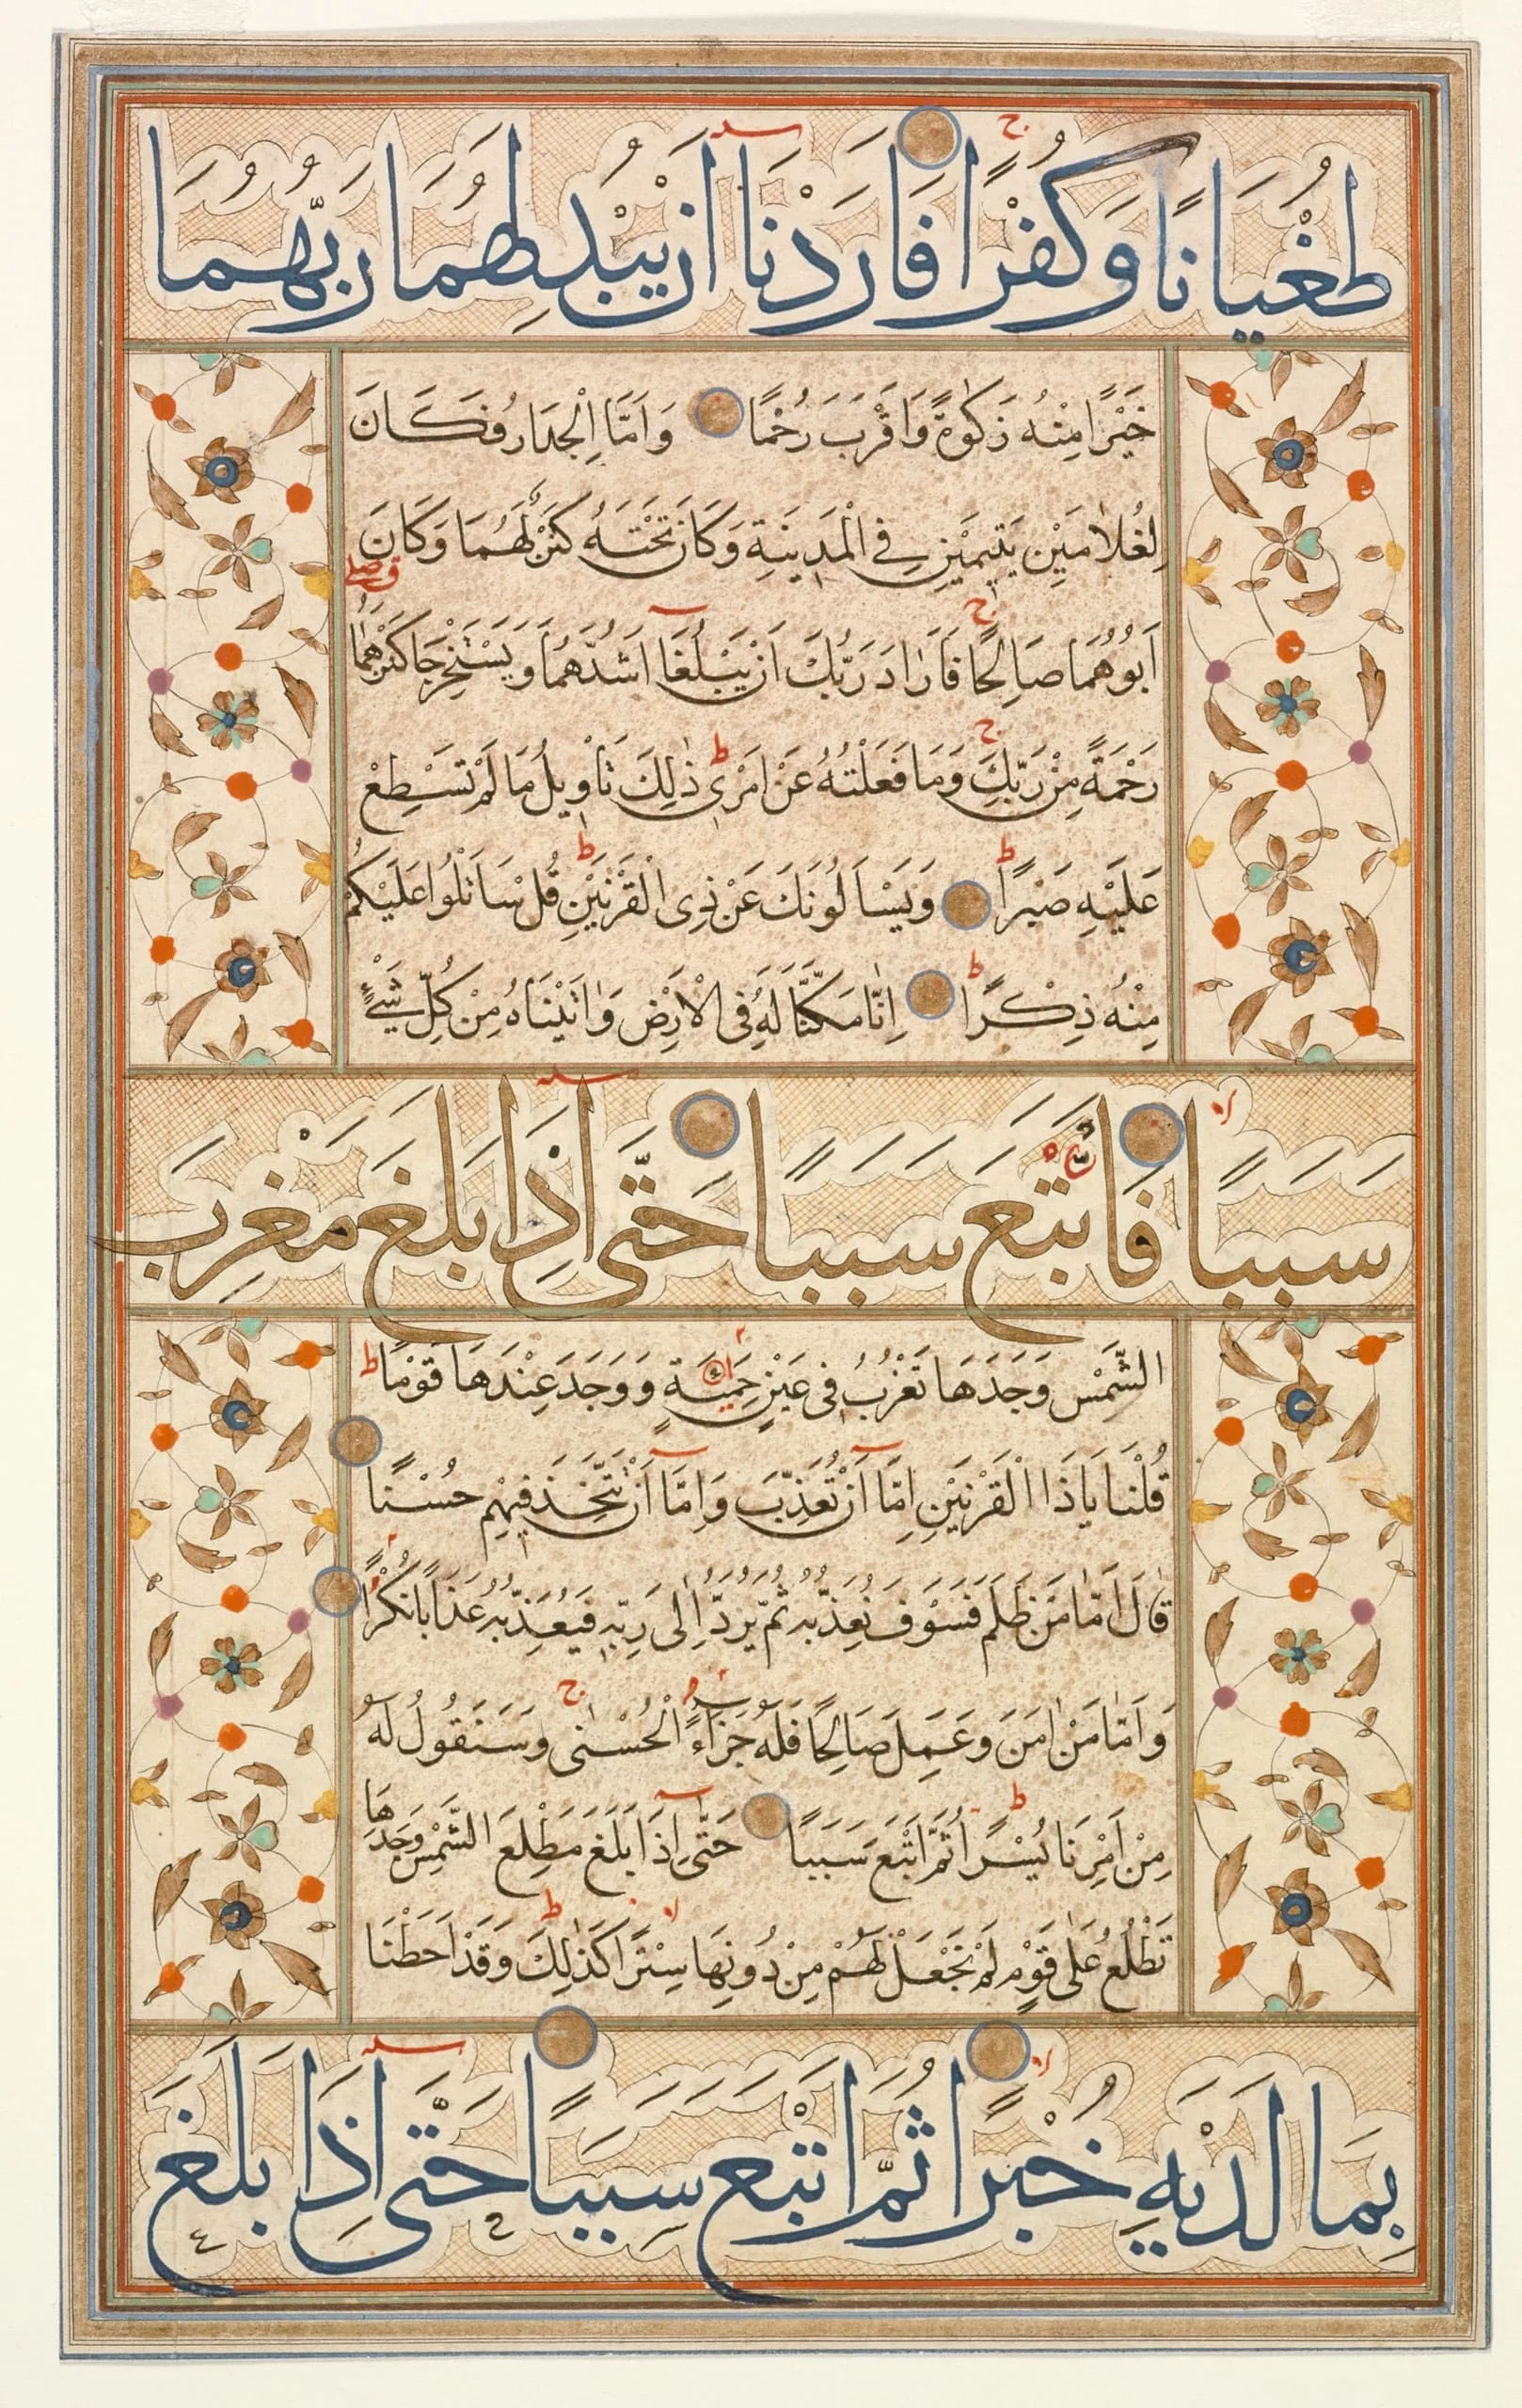 طُغْيَانًا وَكُفْرًا فَاَرَدْنَا اَنْ يُبْدِلَهُمَا رَبُّهُمَا
خَيْرًا مِنْهُ زَكٰوةً وَاَقْرَبَ رُحْمًا وَاَمَّا الْجِدَارُ فَكَانَ
لِغُلَامَيْنِ يَتِيمَيْنِ فِي الْمَدِينَةِ وَكَانَ تَحْتَهُ كَنْزٌ لَهُمَا وَكَانَ
اَبُوهُمَا صَالِحًا فَاَرَادَ رَبُّكَ اَنْ يَبْلُغَا اَشُدَّهُمَا وَيَسْتَخْرِجَا كَنْزَهُمَا
رَحْمَةً مِنْ رَبِّكَ وَمَا فَعَلْتُهُ عَنْ اَمْرِي ذٰلِكَ تَاْوِيلُ مَا لَمْ تَسْطِعْ
عَلَيْهِ صَبْرًا وَيَسْاَلُونَكَ عَنْ ذِي الْقَرْنَيْنِ قُلْ سَاَتْلُوا عَلَيْكُمْ
مِنْهُ ذِكْرًا اِنَّا مَكَّنَّا لَهُ فِي الْاَرْضِ وَاٰتَيْنَاهُ مِنْ كُلِّ شَيْءٍ
سَبَبًا فَاَتْبَعَ سَبَبًا حَتَّى اِذَا بَلَغَ مَغْرِبَ
الشَّمْسِ وَجَدَهَا تَغْرُبُ فِي عَيْنٍ حَمِئَةٍ وَوَجَدَ عِنْدَهَا قَوْمًا
قُلْنَا يَا ذَا الْقَرْنَيْنِ اِمَّا اَنْ تُعَذِّبَ وَاِمَّا اَنْ تَتَّخِذَ فِيهِمْ حُسْنًا
قَالَ اَمَّا مَنْ ظَلَمَ فَسَوْفَ نُعَذِّبُهُ ثُمَّ يُرَدُّ اِلٰى رَبِّهِ فَيُعَذِّبُهُ عَذَابًا نُكْرًا
وَاَمَّا مَنْ اٰمَنَ وَعَمِلَ صَالِحًا فَلَهُ جَزَاءً الْحُسْنٰى وَسَنَقُولُ لَهُ
مِنْ اَمْرِنَا يُسْرًا ثُمَّ اَتْبَعَ سَبَبًا حَتّٰى اِذَا بَلَغَ مَطْلِعَ الشَّمْسِ وَجَدَهَا
تَطْلُعُ عَلٰى قَوْمٍ لَمْ نَجْعَلْ لَهُمْ مِنْ دُونِهَا سِتْرًا كَذٰلِكَ وَقَدْ اَحَطْنَا
بِمَا لَدَيْهِ خُبْرًا ثُمَّ اَتْبَعَ سَبَبًا حَتَّى اِذَا بَلَغَ